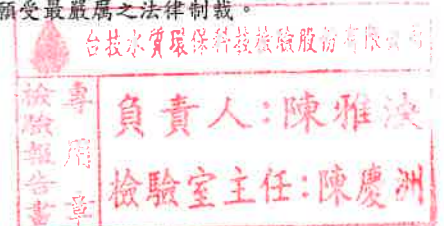 願受最嚴厲之法律制裁。
台技水質環保科技檢驗股份有限公司
檢驗報告書
專用章
負責人：陳雅
檢驗室主任：陳慶洲